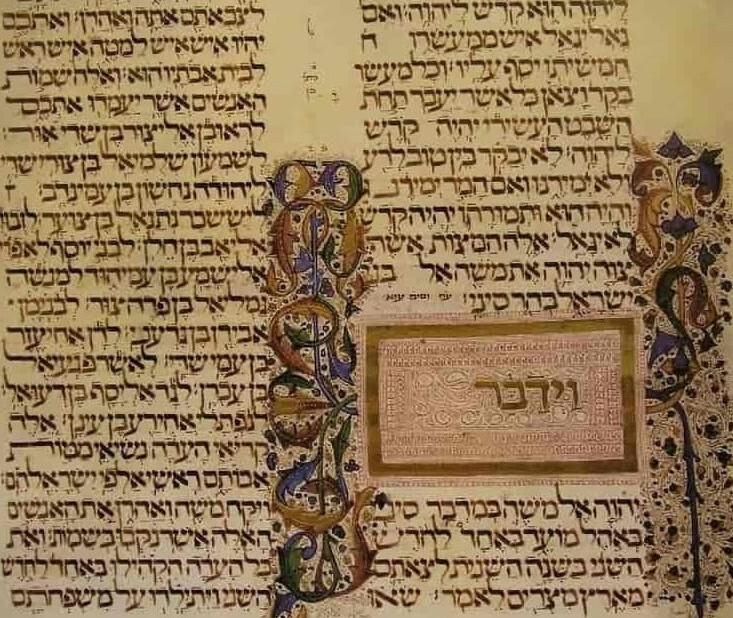 ליהוה הוא קדש ליהוה ואם
גאל יגאל איש ממעשרו ח
חמשיתו יסף עליו וכל מעשר
בקר וצאן כל אשר יעבר תחת
השבט העשירי יהיה קדש
ליהוה לא יבקר בין טוב לרע
ולא ימירנו ואם המר ימירנו
והיה הוא ותמורתו יהיה קדש
לא יגאל אלה המצות אשר
צוה יהוה את משה אל בני
ישראל בהר סיני
וידבר
יהוה אל משה במדבר סיני
באהל מועד באחד לחדש
השני בשנה השנית לצאתם
מארץ מצרים לאמר שאו
לצבאתם אתה ואהרן ואתכם
יהיו איש איש למטה איש ראש
לבית אבתיו הוא ואלה שמות
האנשים אשר יעמדו אתכם
לראובן אליצור בן שדיאור
לשמעון שלמיאל בן צורישדי
ליהודה נחשון בן עמינדב
ליששכר נתנאל בן צוער
אליאב בן חלן לבני יוסף
אלישמע בן עמיהוד למנשה
גמליאל בן פדהצור לבנימן
אבידן בן גדעני לדן אחיעזר
בן עמישדי לאשר פגעיאל
בן עכרן לגד אליסף בן דעואל
לנפתלי אחירע בן עינן אלה
קריאי העדה נשיאי מטות
אבותם ראשי אלפי ישראל הם
ויקח משה ואהרן את האנשים
האלה אשר נקבו בשמות ואת
כל העדה הקהילו באחד לחדש
השני ויתילדו על משפחתם